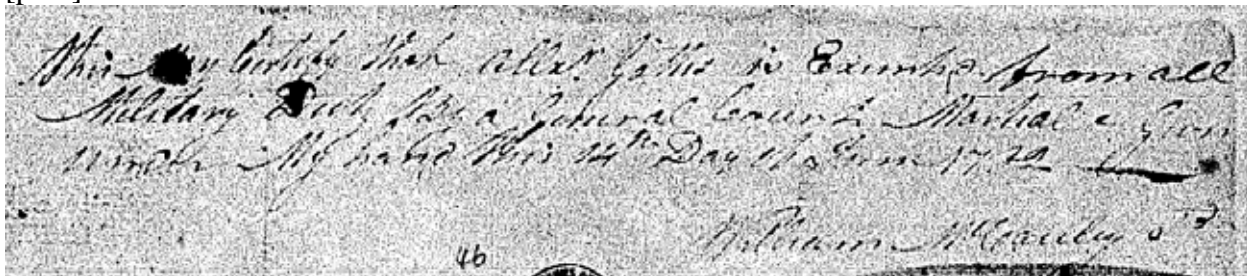 This may Certify that Allexr Gattis is Exempt from all
Military Duty by a General Court Martial Given
under My hand this 14th Day of June 17
William McCauley
46